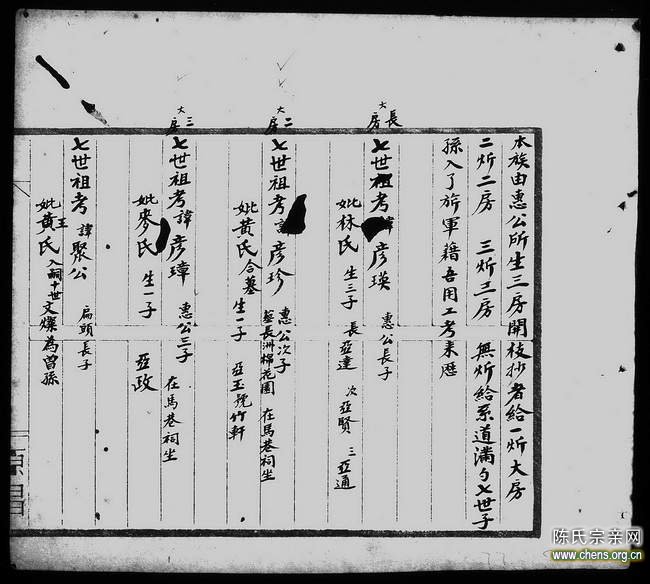 本族由惠公所生三房開枝抄者給一炘大房
二炘二房 三炘三房 無炘給系道滿勺七世子
孫入了旂軍籍吾用工考来歷
長大房
七世祖考諱彦瑛 惠公長子
妣林氏 生三子 長亞達 次亞賢 三亞通
二大房
七世祖考諱彦珍 惠公次子 在馬巷祠坐
妣黃氏合墓 葬長洲棉花園
生一子 亞玉號竹軒
三大房
七世祖考諱彦璋 惠公三子 在馬巷祠坐
妣麥氏 生一子 亞政
七世祖考諱聚公 扁頭長子
妣王黃氏 入嗣十世文燦為曾孫
陈氏宗亲网
www.chens.org.cn